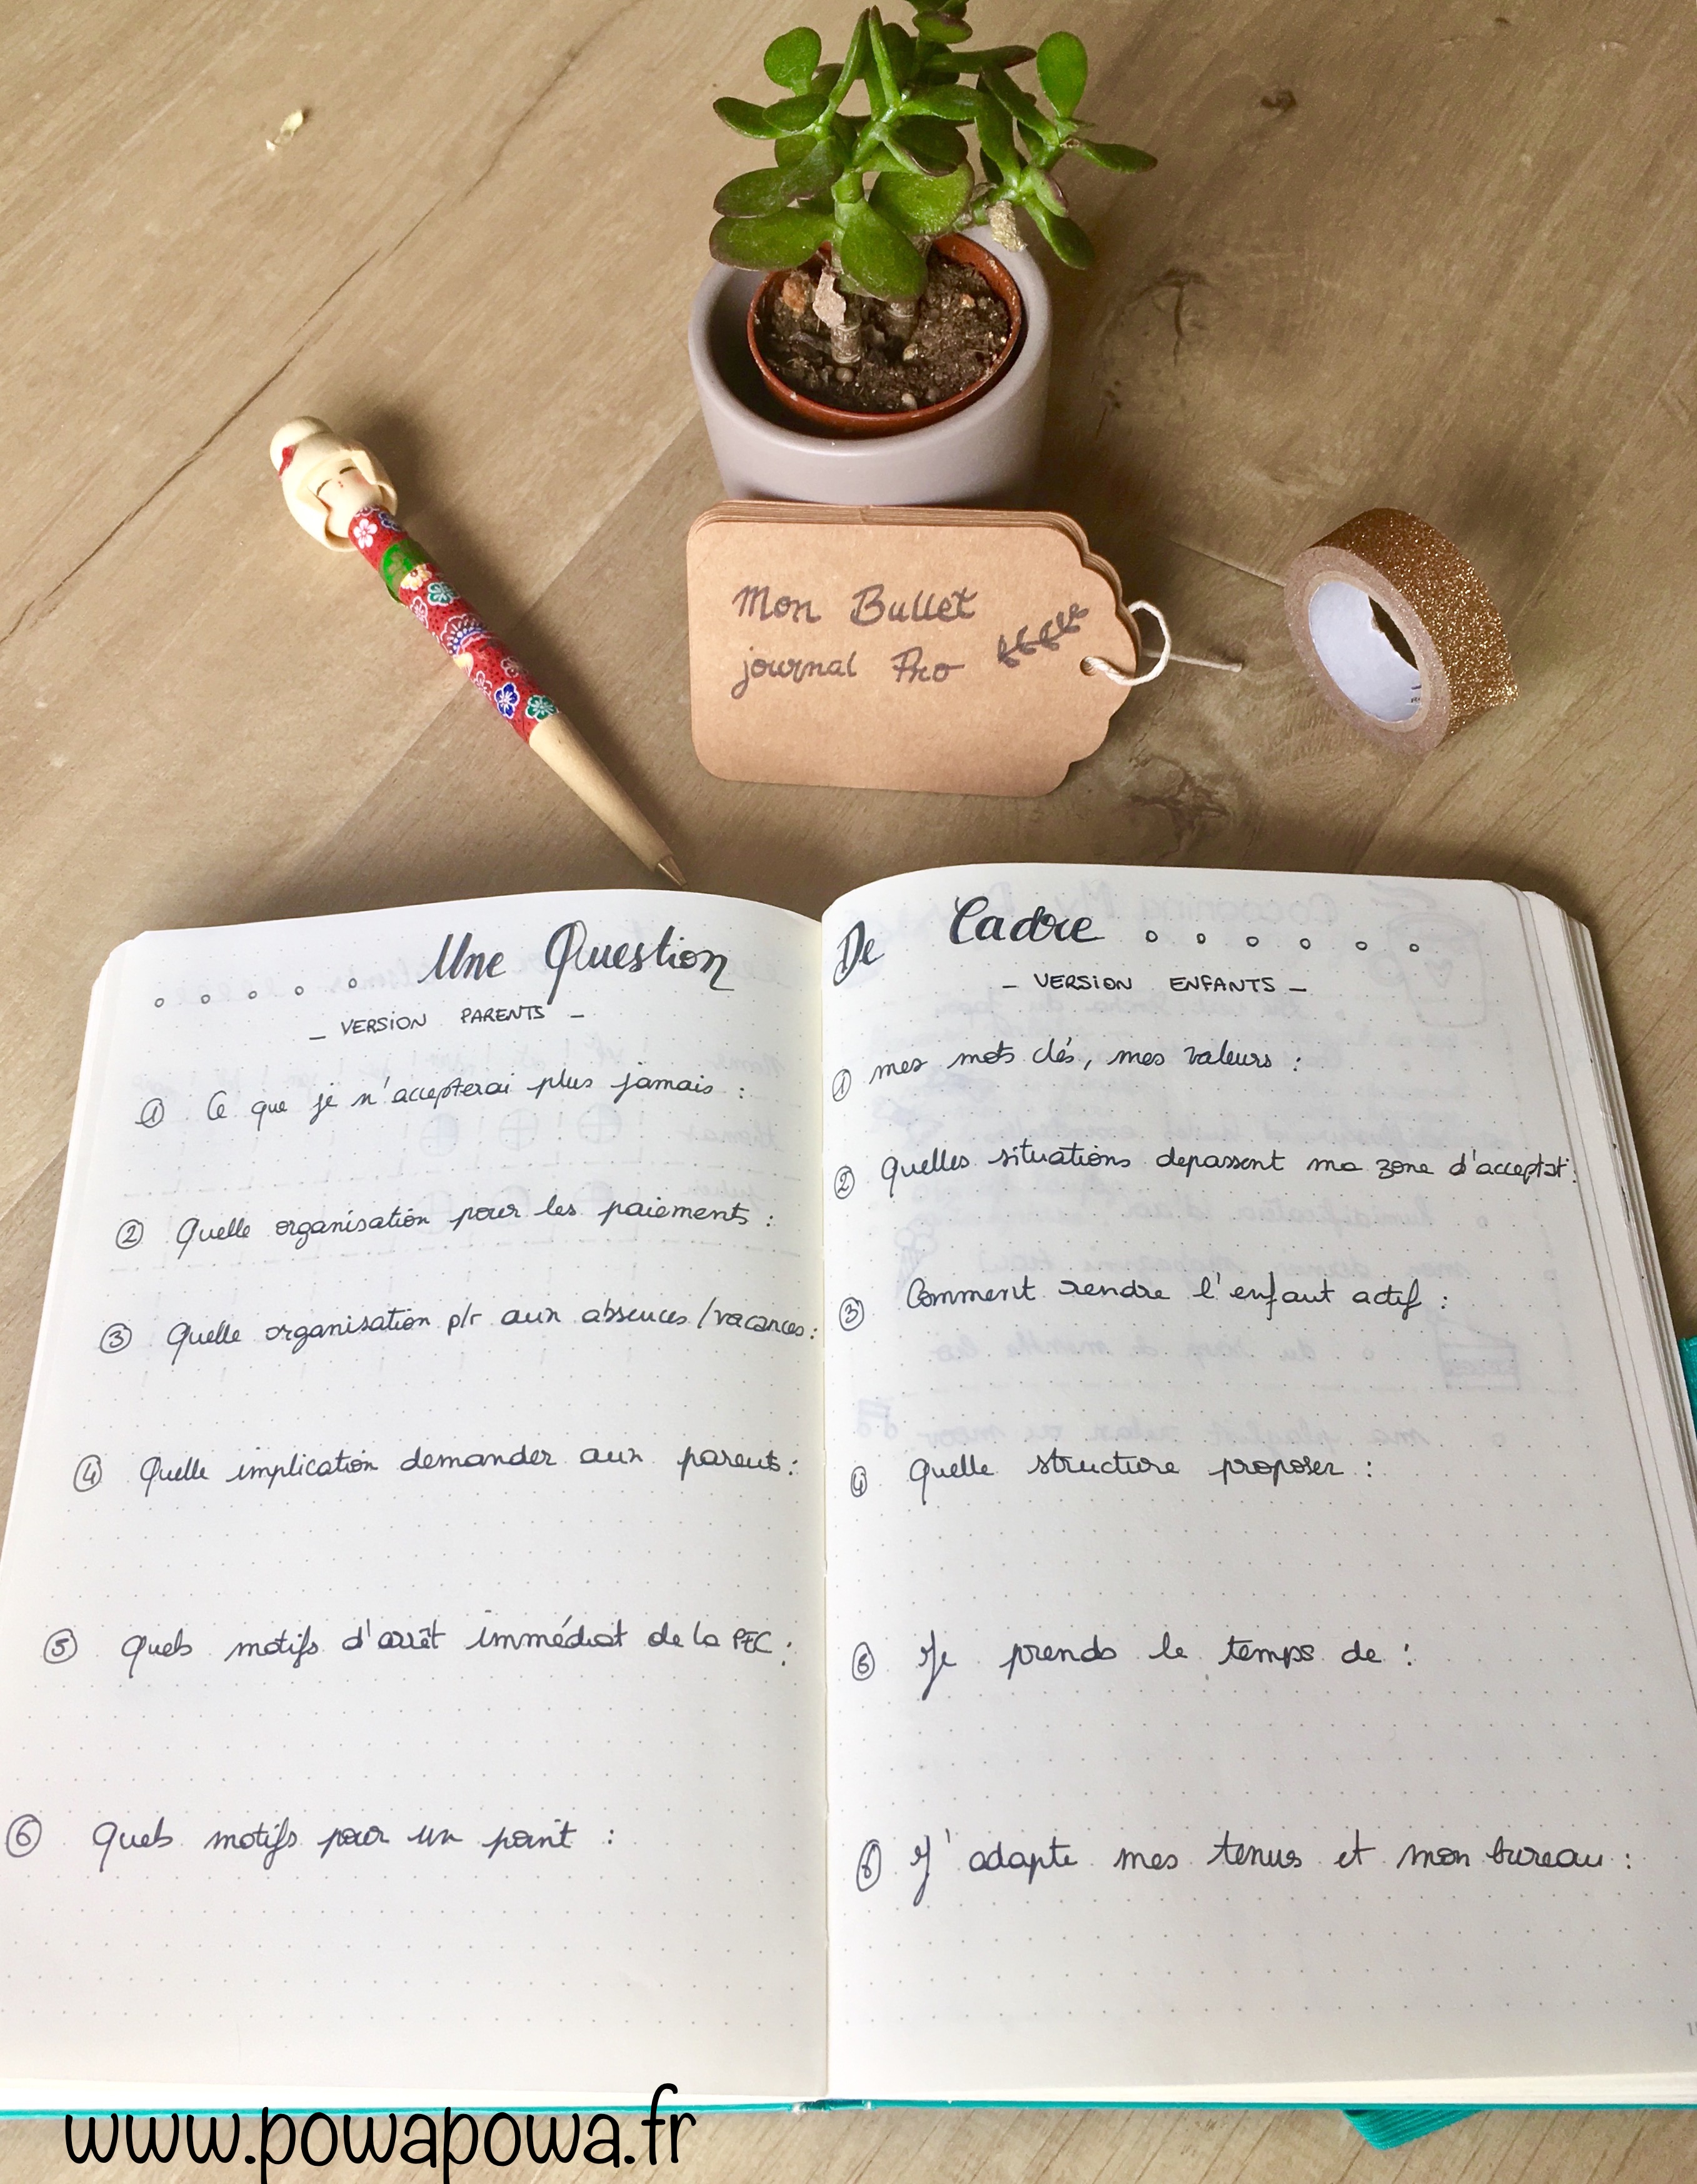 Mon Bullet
journal Pro
Une Question
- VERSION PARENTS -
① Ce que je n'accepterai plus jamais :
② Quelle organisation pour les paiements :
③ Quelle organisation p/r aux absences/vacances :
④ Quelle implication demander aux parents :
⑤ Quels motifs d'arrêt immédiat de la PEC :
⑥ Quels motifs pour un point :
De Cadre
- VERSION ENFANTS -
① mes mots clés, mes valeurs :
② Quelles situations depassent ma zone d'acceptat° :
③ Comment rendre l'enfant actif :
④ Quelle structure proposer :
⑤ Je prends le temps de :
⑥ J'adapte mes tenus et mon bureau :
www.powapowa.fr